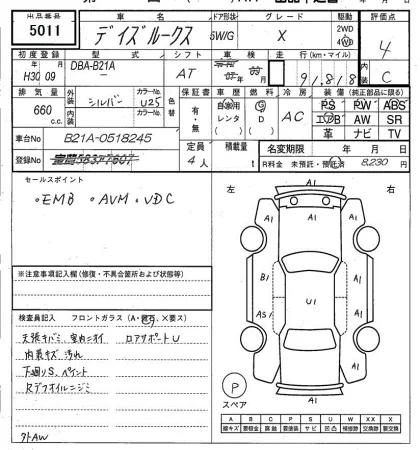 出品番号
5011
車名
デイズルークス
ドア形状
5W/G
グレード
X
駆動
2WD
4WD
評価点
4
内装
C
初度登録
H30年 09月
型式
DBA-B21A
シフト
AT
車検
年 月
走行 (km・マイル)
91,818
排気量
660 c.c.
外装
シルバー
カラーNo.
U25
内装
カラーNo.
色替
保証書
有・無
車歴
自家用
レンタ
燃料
G
D
冷房
AC
装備 (純正部品に限る)
PS PW ABS
エアB AW SR
革 ナビ TV
車台No
B21A-0518245
登録No
定員
4人
積載量
t
名変期限 年 月 日
R料金 未預託・預託済 8,230
セールスポイント
・EMB ・AVM ・VDC
※注意事項記入欄 (修復・不具合箇所および状態等)
検査員記入 フロントガラス (A・飛石、×要ス)
天張キバミ、室内ニオイ ロアサポートU
内装キズ、汚れ
下廻りS、ペイント
Rデフオイルニジミ
社外AW
左 右
A1
A1 A1
A1
B1 A1
U1
AS1 A1
A1
P
スペア
A B C P S U W X XX
線キズ 要板金 腐蝕 要塗装 サビ 凹凸 補修跡 要交換 交換済